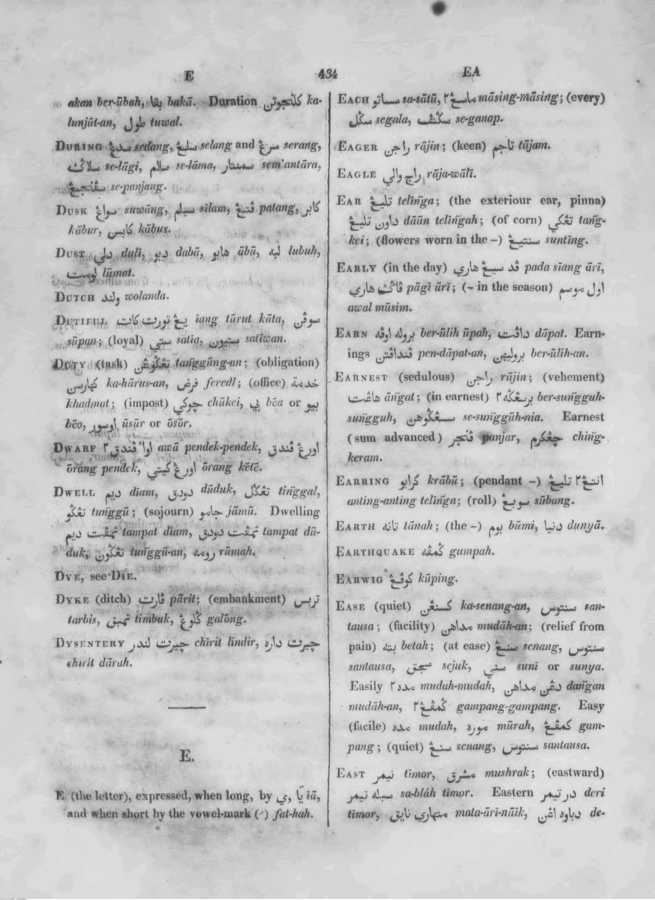 E 434 EA
akan ber-ūbah, بقا bakā. Duration کلنجوتن ka-
lunjūt-an, طول tuwal.
DURING سدڠ sedang, سلڠ selang and سرڠ serang,
سلاݢي se-lāgi, سلام se-lāma, سمنتار sem'antāra,
سڤنجڠ se-panjang.
DUSK سواڠ suwāng, سيلم sīlam, ڤتڠ patang, کابر
kābur, کابس kābus.
DUST دلي duli, دبو dabū, هابو ābū, لبه lubuh,
لومت lūmat.
DUTCH ولند wolanda.
DUTIFUL يڠ تورت کات iang tūrut kāta, سوڤن
sūpan; (loyal) ستي satia, ستيون satīwan.
DUTY (task) تڠݢوڠن tanggūng-an; (obligation)
کهارسن ka-hārus-an, فرض feredl; (office) خدمة
khadmat; (impost) چوکي chūkei, بي bēa or بيو
bēo, اوسور ūsūr or ōsūr.
DWARF اوا awā ڤندق٢ pendek-pendek, اورڠ ڤندق
ōrang pendek, اورڠ کيتي ōrang kētē.
DWELL ديم diam, دودق dūduk, تڠݢل tinggal,
تڠݢو tunggū; (sojourn) جامو jāmū. Dwelling
تمڤت ديم tampat dīam, تمڤت دودق tampat dū-
duk, تڠݢون tunggū-an, رومه rūmah.
DYE, see DIE.
DYKE (ditch) ڤارت pārit; (embankment) تربس
tarbis, تمبق timbuk, ݢالوڠ galōng.
DYSENTERY چيرت لندر chīrit līndir, چيرت داره
chīrit dārah.
E.
E (the letter), expressed, when long, by ي, يا iā,
and when short by the vowel-mark (َ) fat-hah.
EACH ساتو sa-sātū, ماسڠ٢ māsing-māsing; (every)
سݢل segala, سݢنڤ se-ganap.
EAGER راجن rājin; (keen) تاجم tājam.
EAGLE راج والي rāja-wālī.
EAR تليڠ telinga; (the exteriour ear, pinna)
داون تليڠ dāūn telingah; (of corn) تڠکي tang-
kei; (flowers worn in the –) سنتيڠ sunting.
EARLY (in the day) ڤد سيڠ هاري pada sīang ārī,
ڤاݢي هاري pāgī ārī; (– in the season) اول موسم
awal mūsim.
EARN بروله اوڤه ber-ūlih ūpah, داڤت dāpat. Earn-
ings ڤنداڤتن pen-dāpat-an, بروليهن ber-ūlih-an.
EARNEST (sedulous) راجن rājin; (vehement)
هاڠت āngat; (in earnest) برسڠݢه٢ ber-sungguh-
sungguh, سسڠݢوهن se-sungguh-nia. Earnest
(sum advanced) ڤنجر panjar, چڠکرم chīng-
keram.
EARRING کرابو krābū; (pendant –) انتڠ٢ تليڠ
anting-anting telinga; (roll) سوبڠ sūbang.
EARTH تانه tānah; (the –) بوم būmi, دنيا dunyā.
EARTHQUAKE ݢمڤه gumpah.
EARWIG کوڤڠ kūping.
EASE (quiet) کسنڠن ka-senang-an, سنتوس san-
tausa; (facility) مداهن mudāh-an; (relief from
pain) بته betah; (at ease) سنڠ senang, سنتوس
santausa, سجق sejuk, سني suni or sunya.
Easily مده٢ mudah-mudah, دڠن مداهن dangan
mudāh-an, ݢمڤڠ٢ gampang-gampang. Easy
(facile) مده mudah, موره mūrah, ݢمڤڠ gam-
pang; (quiet) سنڠ senang, سنتوس santausa.
EAST تيمر tīmor, مشرق mushrak; (eastward)
سبله تيمر sa-blāh timor. Eastern در تيمر deri
timor, متهاري نايق mata-āri-nāik, دباوه اڠن de-